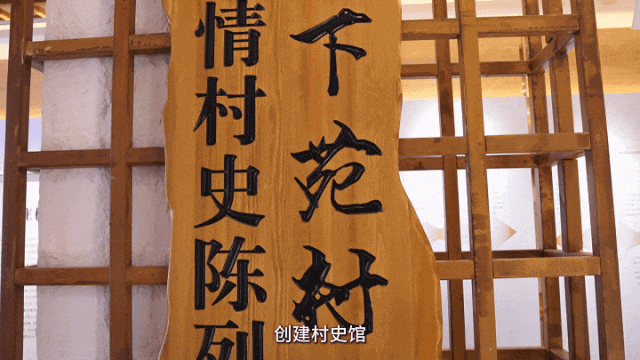 下苑村
情村史陈列
创建村史馆